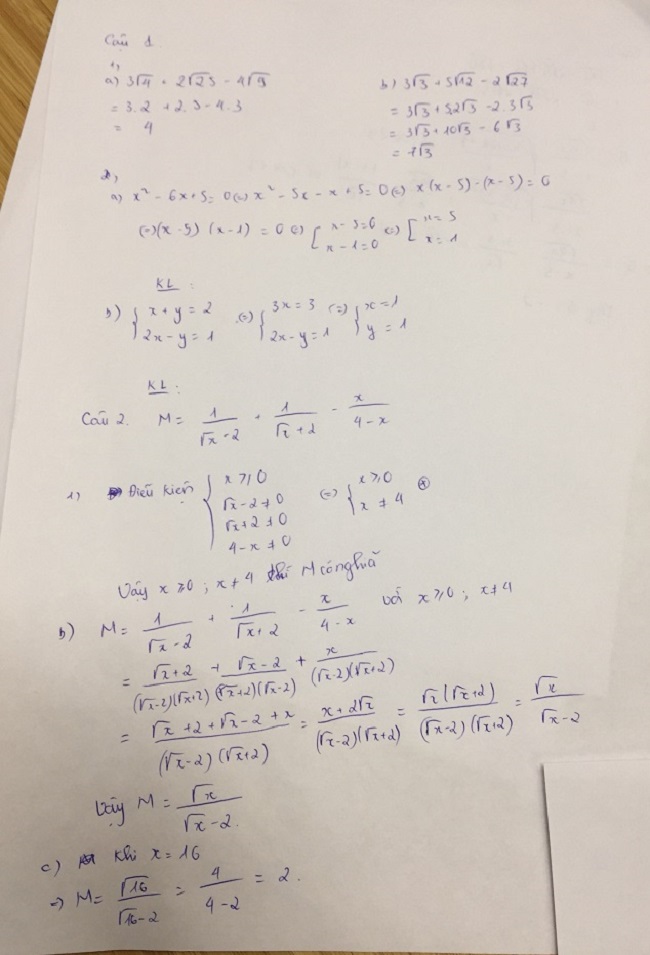 Câu 1
1,
a) 3√4 + 2√25 - 4√9
= 3.2 + 2.5 - 4.3
= 4
b) 3√3 + 5√12 - 2√27
= 3√3 + 5.2√3 - 2.3√3
= 3√3 + 10√3 - 6√3
= 7√3
2,
a) x² - 6x + 5 = 0 (=) x² - 5x - x + 5 = 0 (=) x(x - 5) - (x - 5) = 0
(=) (x - 5) (x - 1) = 0 (=) [ x - 5 = 0 ; x - 1 = 0 (=) [ x = 5 ; x = 1
KL :
b) { x + y = 2 ; 2x - y = 1 (=) { 3x = 3 ; 2x - y = 1 (=) { x = 1 ; y = 1
KL :
Câu 2. M = 1/(√x - 2) + 1/(√x + 2) - x/(4 - x)
1) Điều kiện { x ≥ 0 ; √x - 2 ≠ 0 ; √x + 2 ≠ 0 ; 4 - x ≠ 0 (=) { x ≥ 0 ; x ≠ 4
Vậy x ≥ 0 ; x ≠ 4 thì M có nghĩa
b) M = 1/(√x - 2) + 1/(√x + 2) - x/(4 - x) với x ≥ 0 ; x ≠ 4
= (√x + 2)/((√x - 2)(√x + 2)) + (√x - 2)/((√x + 2)(√x - 2)) + x/((√x - 2)(√x + 2))
= (√x + 2 + √x - 2 + x)/((√x - 2)(√x + 2)) = (x + 2√x)/((√x - 2)(√x + 2)) = √x(√x + 2)/((√x - 2)(√x + 2)) = √x/(√x - 2)
Vậy M = √x/(√x - 2).
c) Khi x = 16
=> M = √16/(√16 - 2) = 4/(4 - 2) = 2.